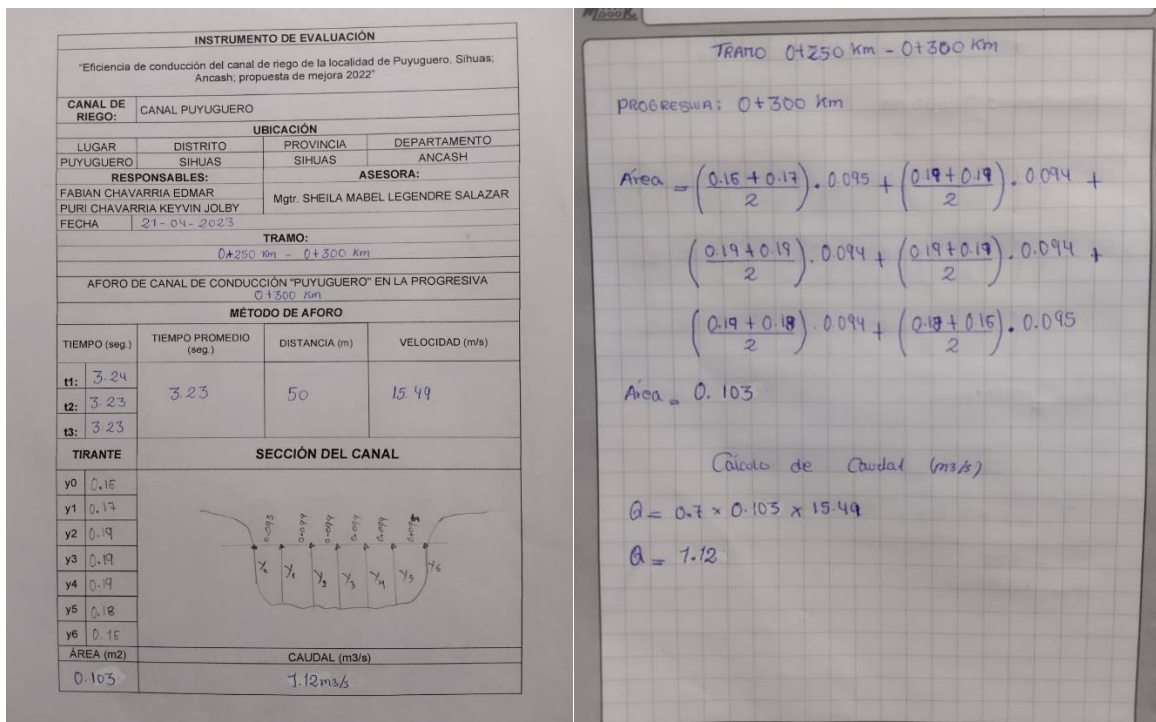 INSTRUMENTO DE EVALUACIÓN
"Eficiencia de conducción del canal de riego de la localidad de Puyuguero, Sihuas;
Ancash; propuesta de mejora 2022"
CANAL DE RIEGO: CANAL PUYUGUERO
UBICACIÓN
LUGAR DISTRITO PROVINCIA DEPARTAMENTO
PUYUGUERO SIHUAS SIHUAS ANCASH
RESPONSABLES: ASESORA:
FABIAN CHAVARRIA EDMAR
PURI CHAVARRIA KEYVIN JOLBY
Mgtr. SHEILA MABEL LEGENDRE SALAZAR
FECHA 21-04-2023
TRAMO:
0+250 Km - 0+300 Km
AFORO DE CANAL DE CONDUCCIÓN "PUYUGUERO" EN LA PROGRESIVA
0+300 Km
MÉTODO DE AFORO
TIEMPO (seg.) TIEMPO PROMEDIO (seg.) DISTANCIA (m) VELOCIDAD (m/s)
t1: 3.24
t2: 3.23
t3: 3.23
3.23 50 15.49
TIRANTE SECCIÓN DEL CANAL
y0 0.16
y1 0.17
y2 0.19
y3 0.19
y4 0.19
y5 0.18
y6 0.16
0.095 0.094 0.094 0.094 0.094 0.095
Y0 Y1 Y2 Y3 Y4 Y5 Y6
ÁREA (m2) CAUDAL (m3/s)
0.103 1.12m3/s
TRAMO 0+250 Km - 0+300 Km
PROGRESIVA: 0+300 Km
Área = (0.16 + 0.17 / 2) . 0.095 + (0.17 + 0.19 / 2) . 0.094 +
(0.19 + 0.19 / 2) . 0.094 + (0.19 + 0.19 / 2) . 0.094 +
(0.19 + 0.18 / 2) . 0.094 + (0.18 + 0.16 / 2) . 0.095
Área = 0.103
Cálculo de Caudal (m3/s)
Q = 0.7 x 0.103 x 15.49
Q = 1.12